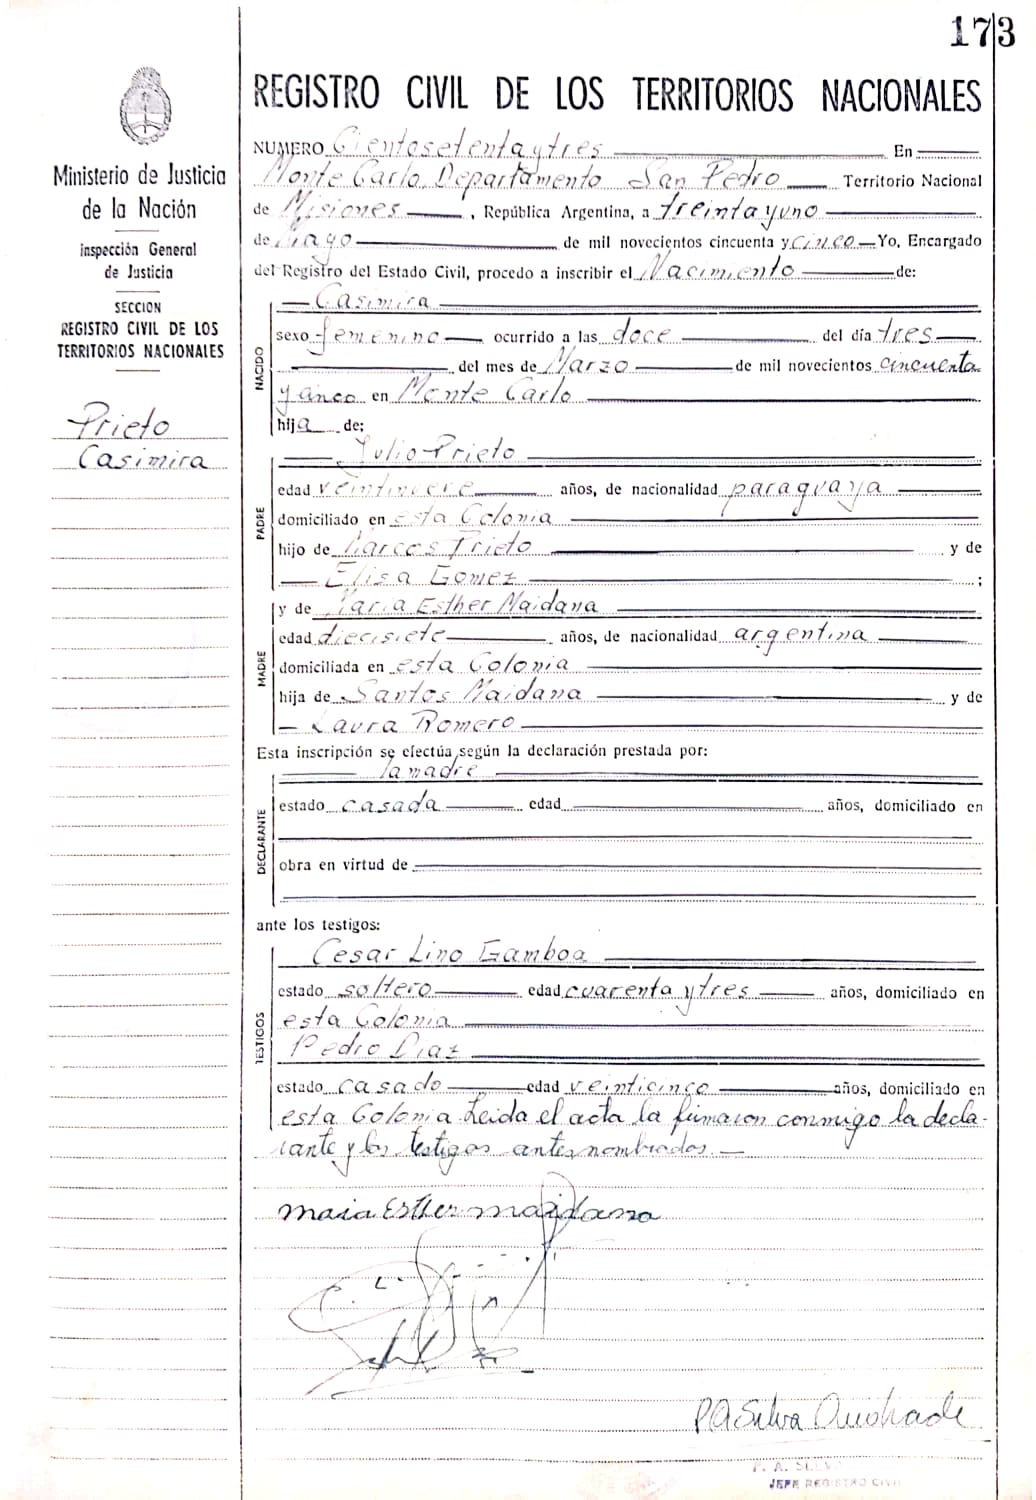 173
REGISTRO CIVIL DE LOS TERRITORIOS NACIONALES
Ministerio de Justicia
de la Nación
Inspección General
de Justicia
SECCION
REGISTRO CIVIL DE LOS
TERRITORIOS NACIONALES
Prieto
Casimira
NUMERO Ciento setenta y tres En
Monte Carlo, Departamento San Pedro Territorio Nacional
de Misiones, República Argentina, a treinta y uno
de Mayo de mil novecientos cincuenta y cinco Yo, Encargado
del Registro del Estado Civil, procedo a inscribir el Nacimiento de:
NACIDO
Casimira
sexo femenino ocurrido a las doce del día tres
del mes de Marzo de mil novecientos cincuenta
y cinco en Monte Carlo
hija de:
PADRE
Julio Prieto
edad veintinueve años, de nacionalidad paraguaya
domiciliado en esta Colonia
hijo de Marcos Prieto y de
Elisa Gomez ;
MADRE
y de Maria Esther Maidana
edad diecisiete años, de nacionalidad argentina
domiciliada en esta Colonia
hija de Santos Maidana y de
Laura Romero
Esta inscripción se efectúa según la declaración prestada por:
DECLARANTE
la madre
estado casada edad años, domiciliado en
obra en virtud de
ante los testigos:
TESTIGOS
Cesar Lino Gamboa
estado soltero edad cuarenta y tres años, domiciliado en
esta Colonia
Pedro Diaz
estado casado edad veinticinco años, domiciliado en
esta Colonia. Leida el acta la firmaron conmigo la decla-
rante y los testigos antes nombrados.
maria Esther maidana
P A Silva Andrade
P. A. SILVA
JEFE REGISTRO CIVIL